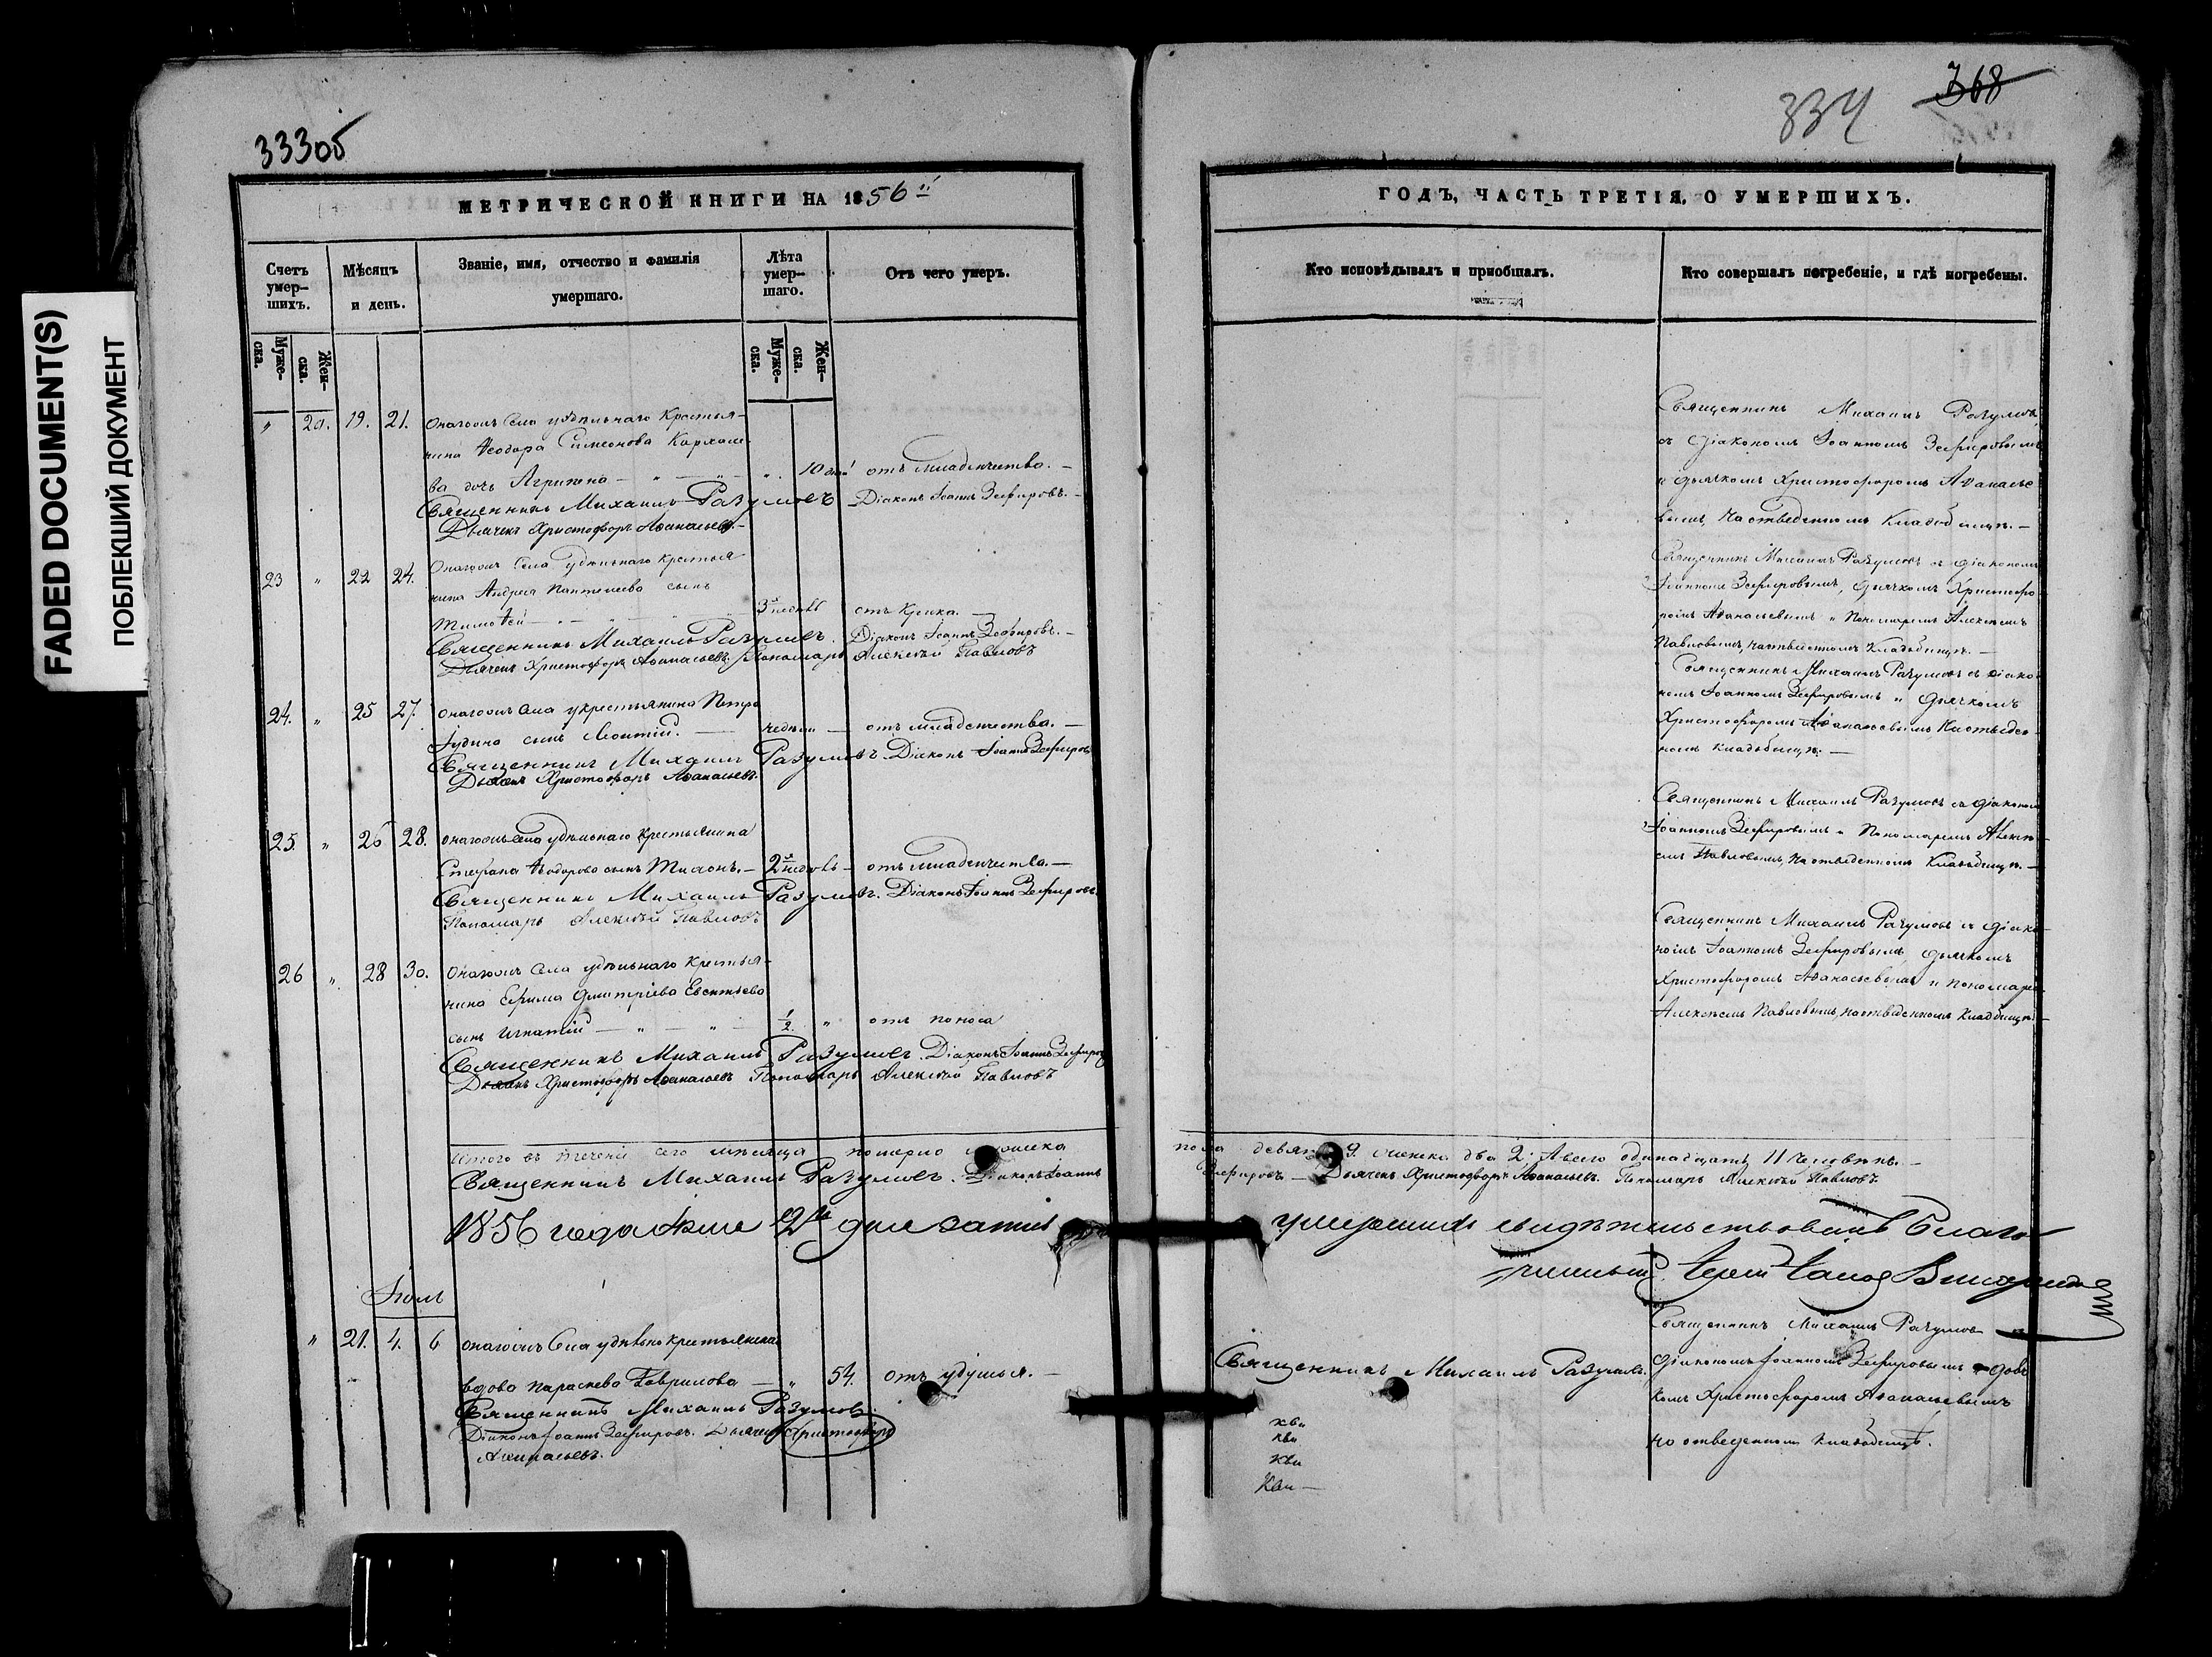 FADED DOCUMENT(S)
ПОБЛЕКШИЙ ДОКУМЕНТ
333об
МЕТРИЧЕСКОЙ КНИГИ НА 1856й
Счетъ умер-шихъ.
Мѣсяцъ и день.
Званіе, имя, отчество и фамилія умершаго.
Лѣта умер-шаго.
Отъ чего умеръ.
Муже-ска.
Жен-ска.
Муже-ска.
Жен-ска.
" 20. 19. 21. Онагожъ Села удѣльнаго Крестья-
нина Ѳеодора Симеонова
ва дочь Агрипена — " — " — ". 10 дней отъ младенчества. —
Священникъ Михаилъ Разумовъ Діаконъ Іоаннъ Зефировъ. —
Дьячекъ Христофоръ Аѳанасьевъ. —
23 " 22 24. Онагожъ Села Удѣльнаго Крестья
нина Андрея Пантелеева сынъ
Тимоѳей — 3 недѣль отъ Крика. —
Священникъ Михаилъ Разумовъ. Діаконъ Іоаннъ Зефировъ. —
Дьячекъ Христофоръ Аѳанасьевъ. Пономарь Алексѣй Павловъ
24. " 25 27. Онагожъ Села у крестьянина Петра
Іудина сынъ Леонтій. — недѣли — отъ младенчества. —
Священникъ Михаилъ Разумовъ. Діаконъ Іоаннъ Зефировъ
Дьячекъ Христофоръ Аѳанасьевъ.
25. " 26 28. Онагожъ Села удѣльнаго Крестьянина
Стефана Ѳеодорова сынъ Тихонъ. — 2 недѣль — отъ младенчества. —
Священникъ Михаилъ Разумовъ. Діаконъ Іоаннъ Зефировъ.
Пономарь Алексѣй Павловъ
26 ". 28 30. Онагожъ Села удѣльнаго Крестья-
нина Ефима Дмитріева Евсентьева
сынъ Игнатій — " — " — 1/2. " отъ поноса
Священникъ Михаилъ Разумовъ. Діаконъ Іоаннъ Зефировъ
Дьячекъ Христофоръ Аѳанасьевъ Пономарь Алексѣй Павловъ
Итого въ теченіи сего мѣсяца померло мужеска
Священникъ Михаилъ Разумовъ. Діаконъ Іоаннъ
1856 года 12го дня запись
Іюль
" 21. 4. 6 Онагожъ Села удѣльно крестьянска
вдова Параскева Гаврилова — " 54. отъ удушья. —
Священникъ Михаилъ Разумовъ.
Діаконъ Іоаннъ Зефировъ. Дьячекъ Христофоръ
Аѳанасьевъ.
334
368
ГОДЪ, ЧАСТЬ ТРЕТІЯ, О УМЕРШИХЪ.
Кто исповѣдывалъ и пріобщалъ.
Кто совершалъ погребеніе, и гдѣ погребены.
Священникъ Михаилъ Разумовъ
съ Діакономъ Іоанномъ Зефировымъ
и дьячкомъ Христофоромъ Аѳанасье
вымъ, На отведенномъ Кладбищѣ. —
Священникъ Михаилъ Разумовъ съ Діакономъ
Іоанномъ Зефировымъ, дьячкомъ Христофо
ромъ Аѳанасьевымъ и Пономаремъ Алексѣемъ
Павловымъ, на отведенномъ Кладбищѣ. —
Священникъ Михаилъ Разумовъ съ діако
номъ Іоанномъ Зефировымъ и дьячкомъ
Христофоромъ Аѳанасьевымъ На отведен
номъ кладбищѣ. —
Священникъ Михаилъ Разумовъ съ діакономъ
Іоанномъ Зефировымъ и Пономаремъ Алексѣ-
емъ Павловымъ, На отведенномъ Кладбищѣ. —
Священникъ Михаилъ Разумовъ съ Діако-
номъ Іоанномъ Зефировымъ, дьячкомъ
Христофоромъ Аѳанасьевымъ и Пономаремъ
Алексѣемъ Павловымъ, на отведенномъ Кладбищѣ —
пола девять 9. женска два 2. А всего одинадцать 11 человѣкъ. —
Зефировъ — Дьячекъ Христофоръ Аѳанасьевъ. Пономарь Алексѣй Павловъ
умершихъ свидѣтельствовалъ Благо
чинный
Священникъ Михаилъ Разумовъ съ
Священникъ Михаилъ Разумовъ. Діакономъ Іоанномъ Зефировымъ и дьяч
комъ Христофоромъ Аѳанасьевымъ
на отведенномъ кладбищѣ.